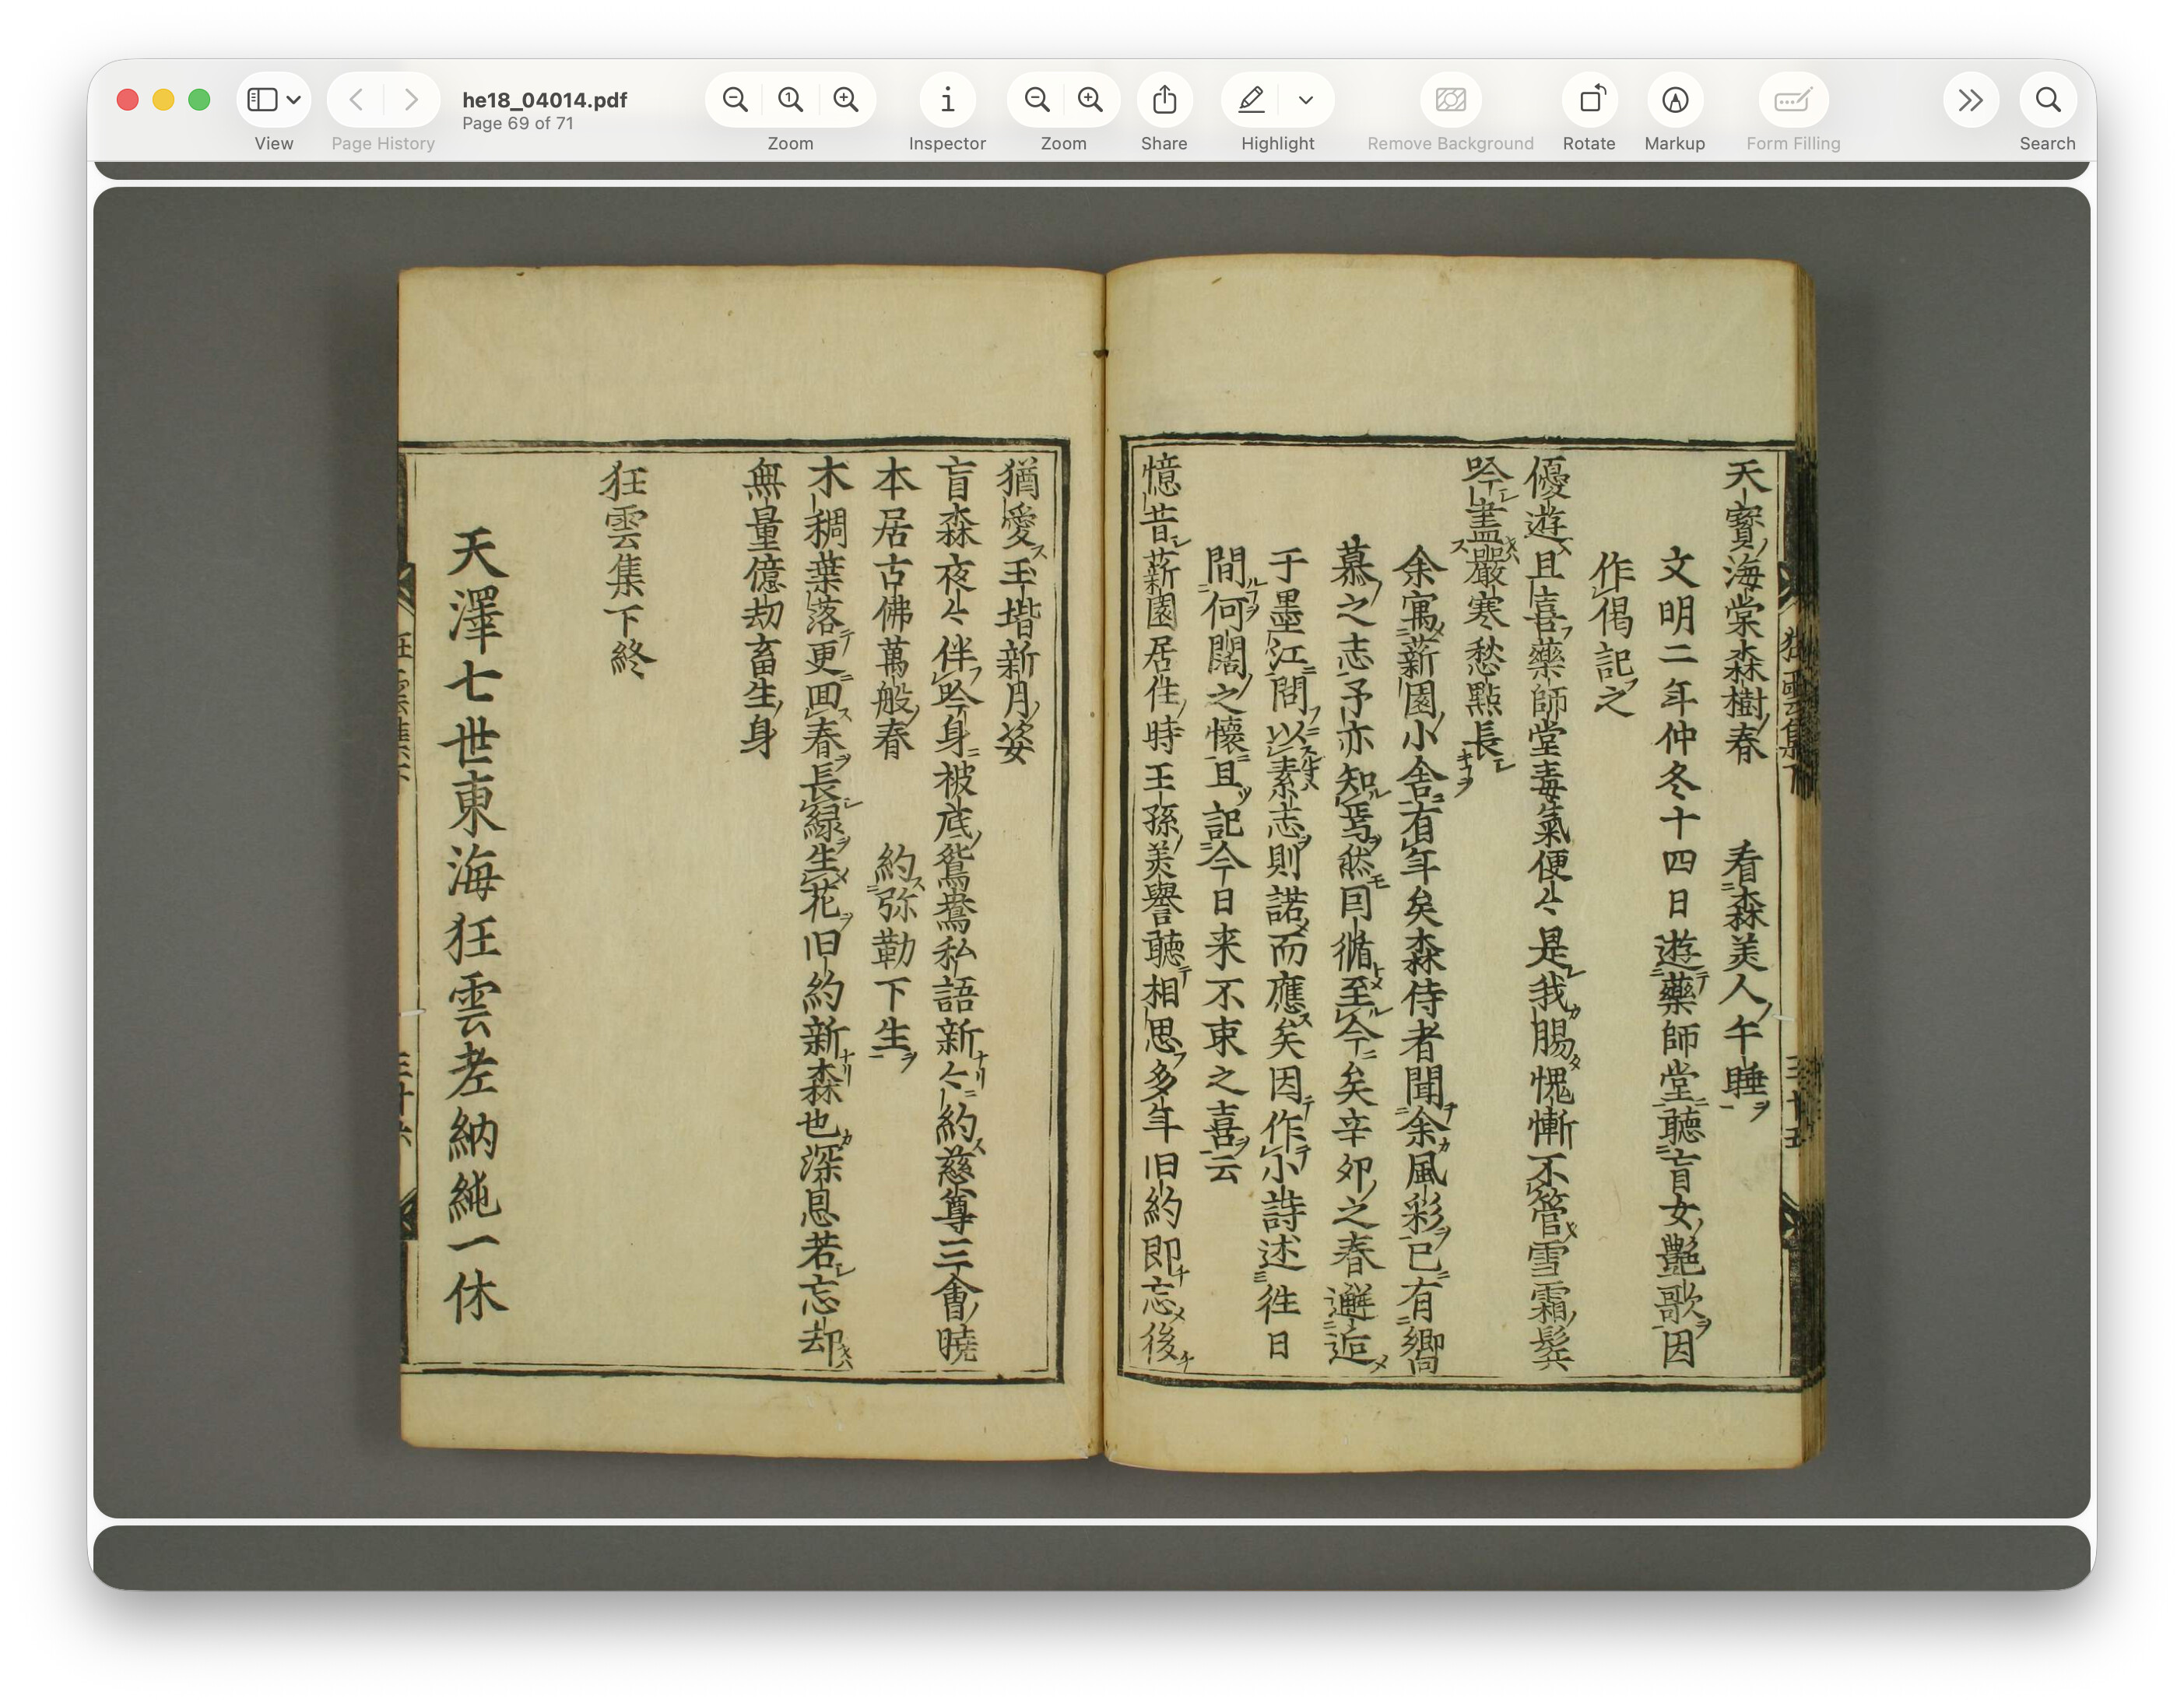 he18_04014.pdf
Page 69 of 71
View
Page History
Zoom
Inspector
Zoom
Share
Highlight
Remove Background
Rotate
Markup
Form Filling
Search
天寳海棠森樹春　看森美人午睡
文明二年仲冬十四日遊藥師堂聽盲女艶歌因
作偈記之
優遊且喜藥師堂毒氣便々是我腸愧慚不管雪霜鬂
吟盡嚴寒愁㸃長
余寓薪園小舎有年矣森侍者聞余風彩已有嚮
慕之志予亦知焉然囙循至今矣辛夘之春邂逅
于墨江問以素志則諾而應矣因作小詩述徃日
間何闊之懷且記今日来不束之喜云
憶昔薪園居住時王孫美譽聽相思多年旧約即忘後
猶愛玉堦新月姿
盲森夜々伴吟身被底鴛鴦私語新々約慈尊三會曉
本居古佛萬般春　約弥勒下生
木稠葉落更囬春長緑生花旧約新森也深恩若忘却
無量億劫畜生身
狂雲集下終
天澤七世東海狂雲老納純一休